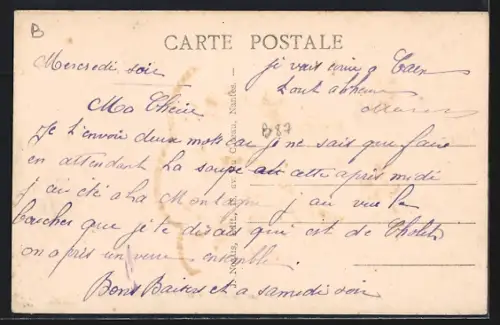 B
CARTE POSTALE
Mercredi soir
Ma Chérie
Je t'envoir deux mots car je ne sais que faire
en attendant la soupe cette après midi
j ai été a la Montagne j ai vue le
boucher que je te disais qui est de
on a pris un verre ensemble
Bons Baisers et a samedi soir
je vais a Caen
tout a l'heure
B87
Nantes